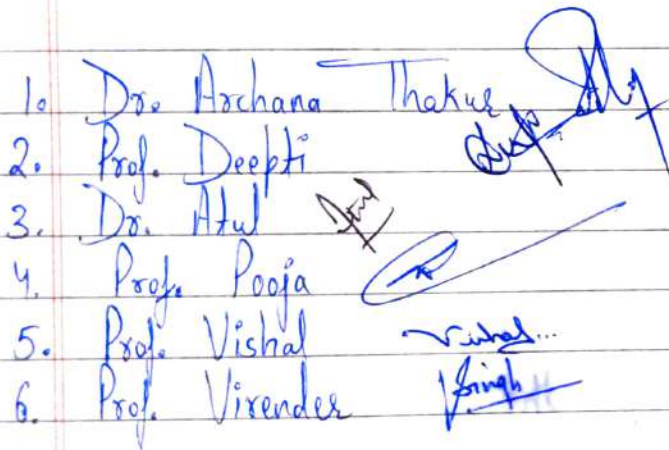 1. Dr. Archana Thakur
2. Prof. Deepti
3. Dr. Atul
4. Prof. Pooja
5. Prof. Vishal Vishal...
6. Prof. Virender VSingh